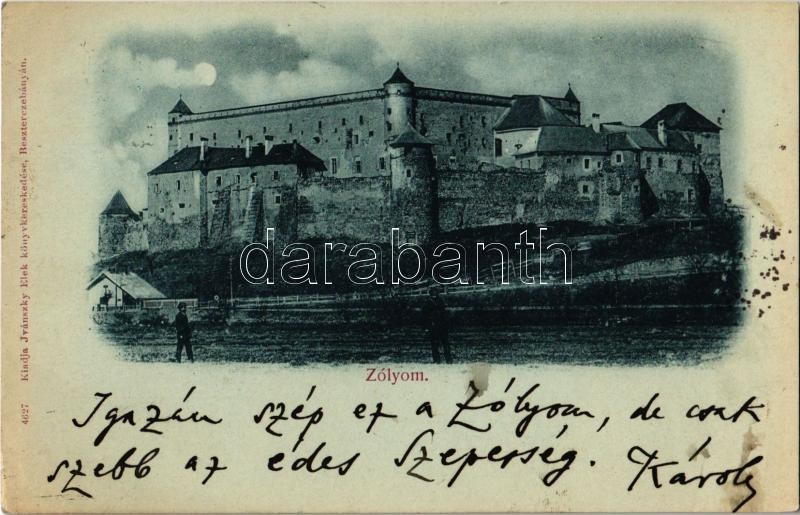 4627 Kiadja Jvánszky Elek könyvkereskedése, Beszterczebányán.
darabanth
Zólyom.
Igazán szép ez a Zólyom, de csak
szebb az édes Szepesség. Károly